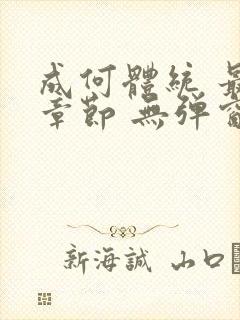 成何體統
章節 無彈
新海誠 山口